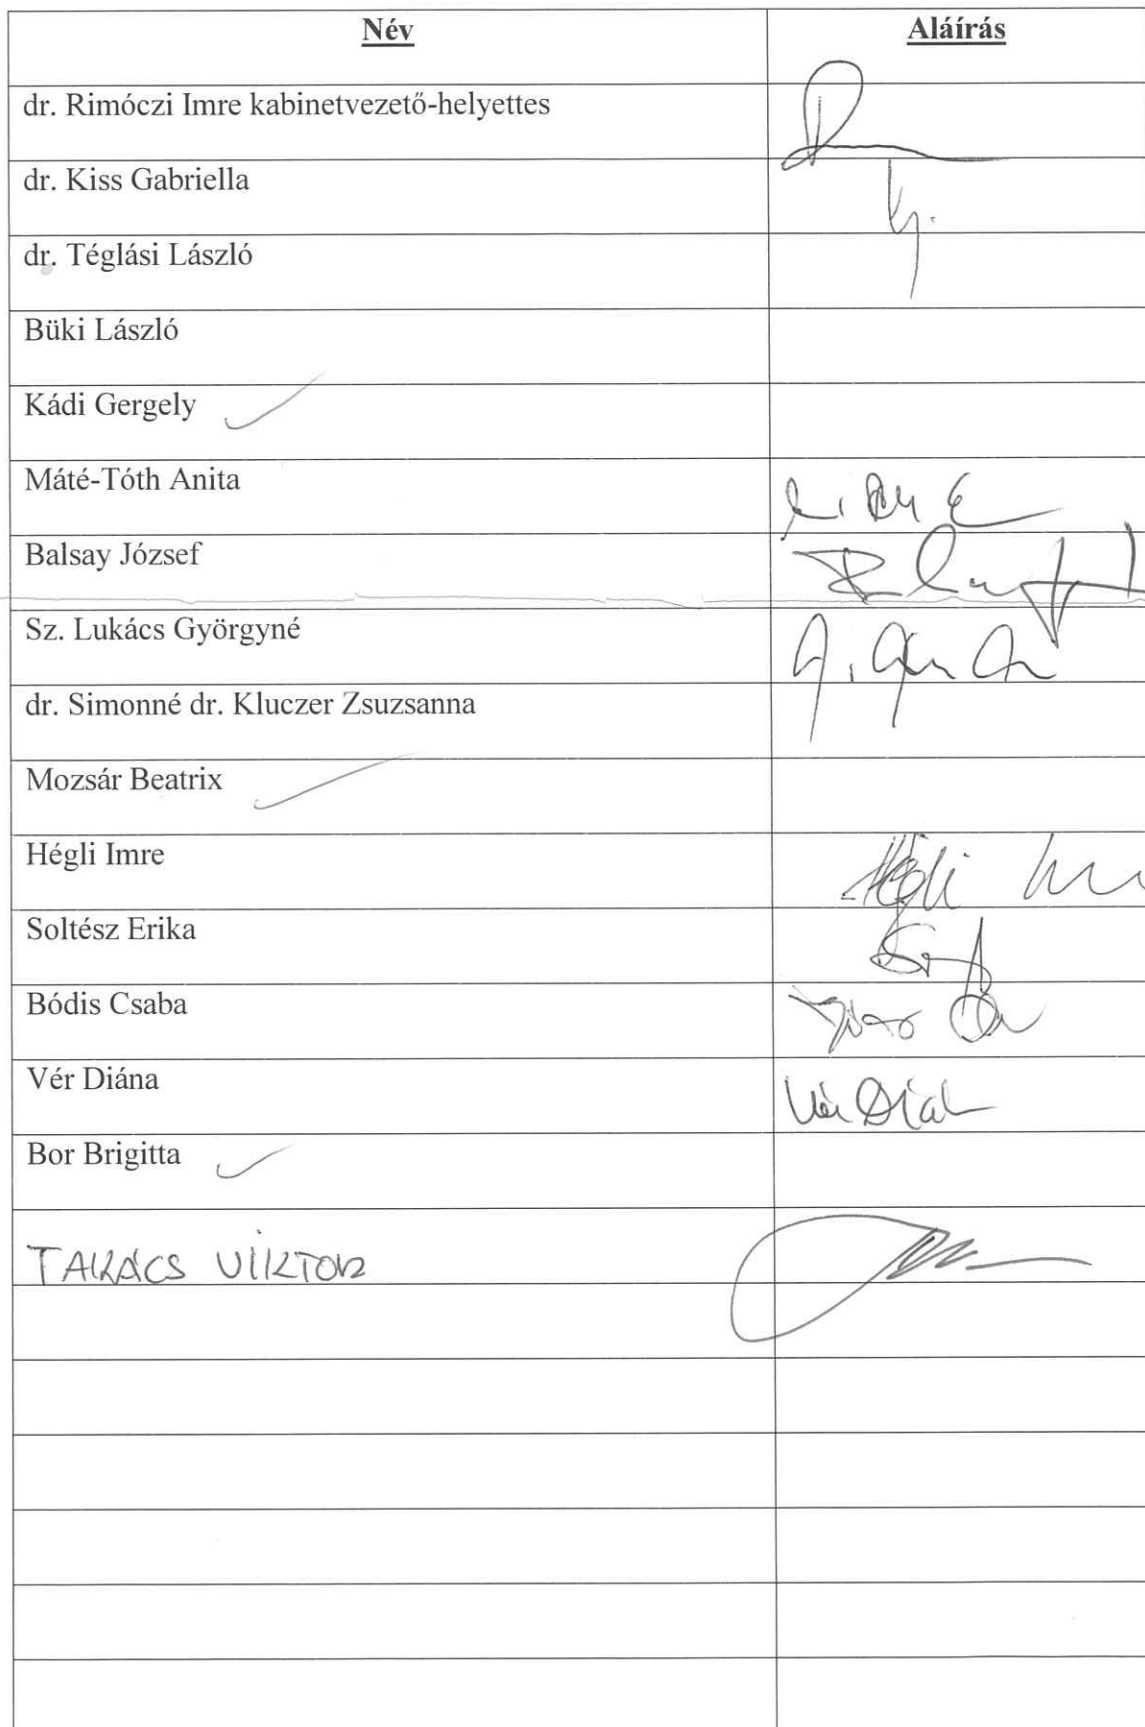 Név Aláírás
dr. Rimóczi Imre kabinetvezető-helyettes
dr. Kiss Gabriella
dr. Téglási László
Büki László
Kádi Gergely
Máté-Tóth Anita
Balsay József
Sz. Lukács Györgyné
dr. Simonné dr. Kluczer Zsuzsanna
Mozsár Beatrix
Hégli Imre
Soltész Erika
Bódis Csaba
Vér Diána
Bor Brigitta
TAKÁCS VIKTOR